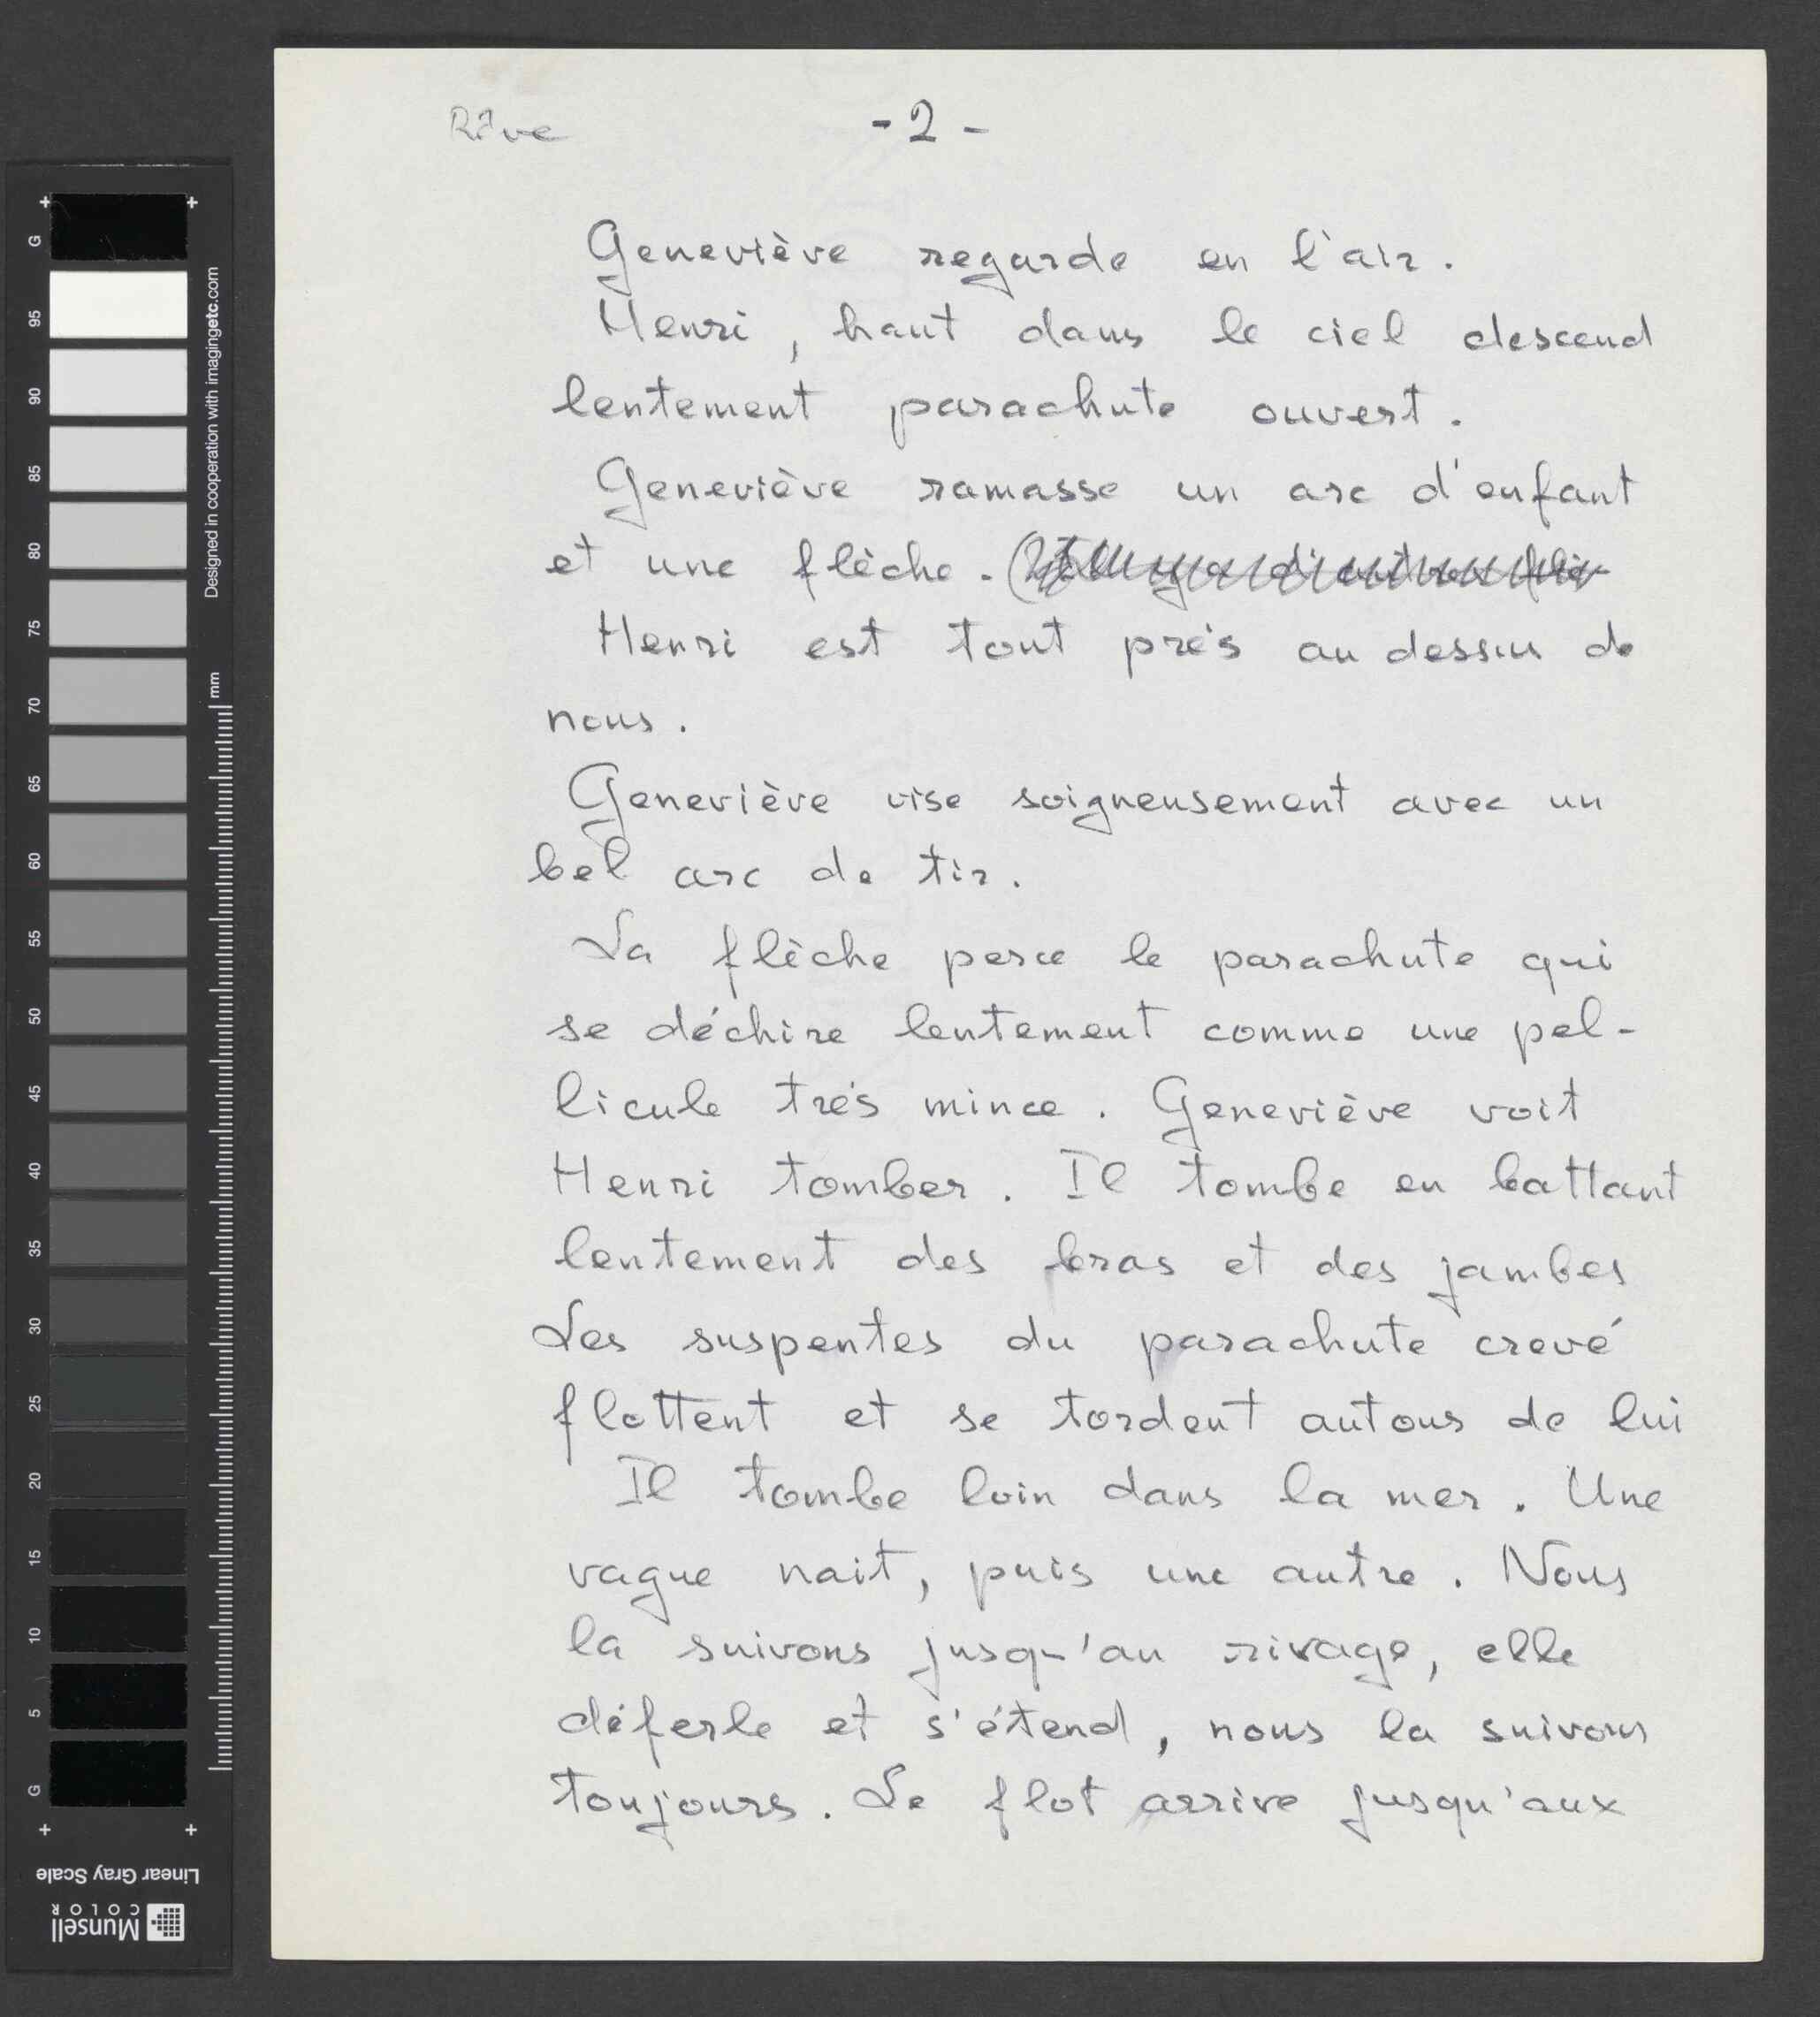 Rêve
- 2 -
Geneviève regarde en l'air.
Henri, haut dans le ciel descend
lentement parachute ouvert.
Geneviève ramasse un arc d'enfant
et une flèche.
Henri est tout près au dessus de
nous.
Geneviève vise soigneusement avec un
bel arc de tir.
La flèche perce le parachute qui
se déchire lentement comme une pel-
licule très mince. Geneviève voit
Henri tomber. Il tombe en battant
lentement des bras et des jambes
Les suspentes du parachute crevé
flottent et se tordent autour de lui
Il tombe loin dans la mer. Une
vague nait, puis une autre. Nous
la suivons jusqu'au rivage, elle
déferle et s'étend, nous la suivons
toujours. Le flot arrive jusqu'aux
G
95
90
85
80
75
70
65
60
55
50
45
40
35
30
25
20
15
10
5
G
Designed in cooperation with imagingetc.com
mm
Linear Gray Scale
Munsell
COLOR